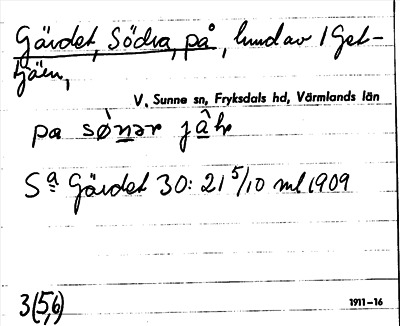 Gärdet, Södra, på,
V. Sunne sn, Fryksdals hd, Värmlands län
pa sø̀nər jâlr
Sa Gärdet 30: 21 5/10 ml 1909
3(5,6)
1911–16